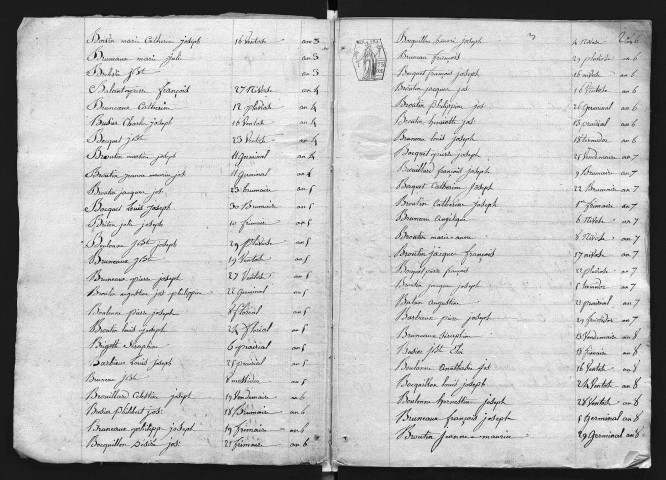 Boitu marie Catherine joseph 16 Ventose an 3
Bruneaux marie julie an 3
Bulidz Jbte an 3
françois 27 Nivose an 4
Bruneaux Catherine 12 pluviose an 4
Budier Charles joseph 16 Ventose an 4
Bocquet Jbte 23 Ventose an 4
Broutin martin joseph 11 Germinal an 4
Broutin jeanne marie jos: 11 Germinal an 4
Broutin jacques jos: 23 brumaire an 5
Bocquet Louis Joseph 30 Brumaire an 5
Briton julie joseph 10 frimaire an 5
Boulonne Jbte joseph 29 Pluviose an 5
Bruneaux Jbte 19 Ventose an 5
Bruneaux pierre joseph 27 Ventose an 5
Broutin augustin jos: philippin 22 germinal an 5
Boulonne pierre joseph 8 floréal an 5
Broutin louis joseph 24 floréal an 5
Bigotte Séraphine 6 prairial an 5
Barbieux Louis joseph 25 prairial an 5
Bruneau Jbte 8 messidor an 5
Brouillard Celestin joseph 19 Vendemaire an 6
Budier philibert jos: 18 Brumaire an 6
Bruneaux philippe joseph 19 frimaire an 6
Bocquillon Désiré jos: 21 frimaire an 6
Bocquillon henri joseph 4 Nivose an 6
Bruneau françois 29 pluviose an 6
Bocquet françois joseph 16 nivose an 6
Broutin jacques jos: 16 Ventose an 6
Broutin philippine jos: 26 Germinal an 6
Broutin henriette jos: 13 prairial an 6
Bruneau louis joseph 18 thermidor an 6
Bocquet pierre joseph 25 Vendemaire an 7
Brouillard françois joseph 9 Brumaire an 7
Bocquet Catherine Joseph 22 Brumaire an 7
Broutin Catherine Joseph 5 frimaire an 7
Bruneau Angelique 6 Nivose an 7
Broutin marie anne 8 Nivose an 7
Broutin jacques françois 17 nivose an 7
Bocquet pierre françois 22 pluviose an 7
Broutin jacques joseph 5 an 7
Bulin augustine 22 prairial an 7
Barbieux pierre joseph 29 fructidor an 7
Bruneaux Séraphin 23 Vendemaire an 8
Budier Jbte Eloi 18 frimaire an 8
Boulonne jos: 16 Ventose an 8
Bocquillon louis joseph 24 Ventose an 8
Boulonne joseph 28 Ventose an 8
Bruneaux françois joseph 5 Germinal an 8
Broutin jeanne maurice 29 Germinal an 8